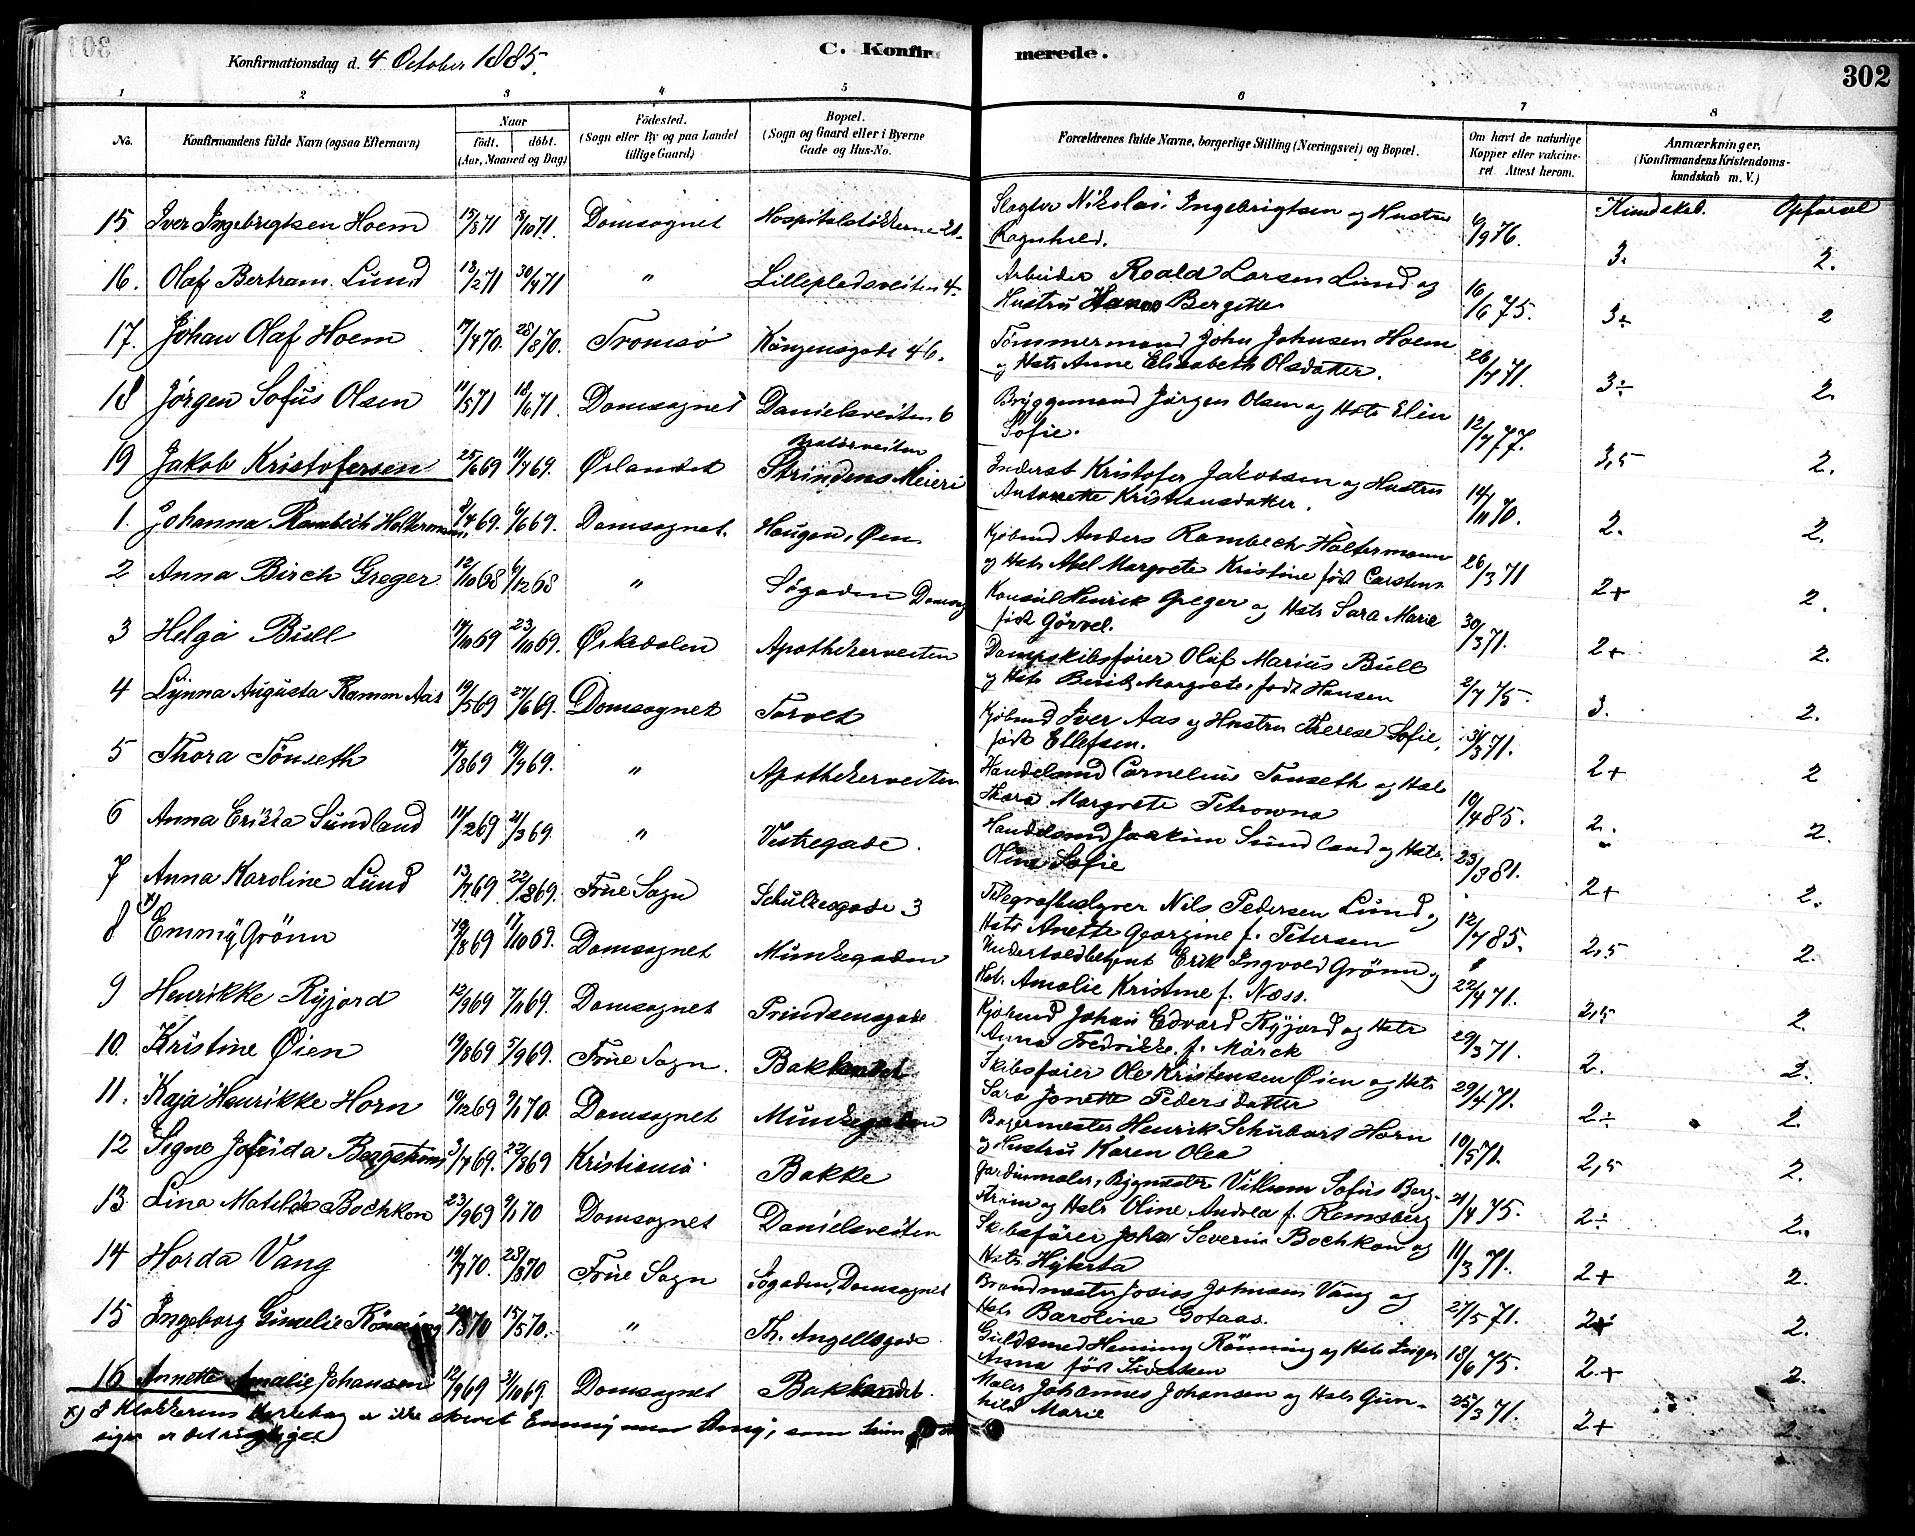 Konfirmationsdag d. 4 October 1885.
C. Konfirmerede.
302
1 2 3 4 5 6 7 8
No.
Konfirmandens fulde Navn (ogsaa Efternavn)
Naar
født. døbt.
(Aar, Maaned og Dag)
Fødested.
(Sogn eller By og paa Landet
tillige Gaard)
Bopæl.
(Sogn og Gaard eller i Byerne
Gade og Hus-No.
Forældrenes fulde Navne, borgerlige Stilling (Næringsvei) og Bopæl.
Om havt de naturlige
Kopper eller vakcine-
ret. Attest herom.
Anmærkninger.
(Konfirmandens Kristendoms-
kundskab m. V.)
Kundskab. Opførsel
15 Iver Ingebrigtsen Hoem 15/8 71 3/10 71. Domsognet Hospitalsløkkerne
Slagter Nikolai Ingebrigtsen og Hustru
Ragnhild. 6/9 76. 3. 2.
16. Olaf Bertram Lund 13/2 71 30/4 71 " Lillepladsveiten 4.
Arbeider Roald Larsen Lund og
Hustru Bergitte 16/6 75. 3÷ 2
17. Johan Olaf Hoem 17/4 70. 28/8 70. Tromsø Kongensgade 46.
Tømmermand John Johnsen Hoem
og Hstr Anne Elisabeth Olsdatter. 26/7 71. 3÷ 2.
18 Jørgen Sofus Olsen 11/5 71 18/6 71. Domsognet Danielsveiten 6
Bryggemand Jørgen Olsen og Hstr Elen
Sofie. 12/7 77. 3,5 2.
19 Jakob Kristofersen 25/6 69 11/7 69. Ørlandet Strindens Meieri
Inderst Kristofer Jakobsen og Hustru
Antonette Kristiansdatter. 14/11 70. 2. 2.
1. Johanna Rambech Holtermann 8/4 69. 6/6 69. Domsognet. Haugen, Øen
Kjøbmd Anders Rambech Holtermann
og Hstr Abel Margrete Kristine født Carstens 26/3 71 2+ 2.
2 Anna Birch Greger 12/10 68 6/12 68 " Søgaden
Konsul Henrik Greger og Hstr Sara Marie
født Gørvel. 30/3 71. 2+ 2.
3 Helga Bull 23/10 69. Ørkedalen Apothekerveiten
Dampskibsfører Oluf Marius Bull
og Hstr Berit Margrete, født Hansen 2/7 75. 3. 2.
4 Lynna Augusta Ramm Aas 19/5 69 27/6 69. Domsognet Torvet
Kjøbmd Iver Aas og Hustru Therese Sofie,
født Ellefsen. 31/3 71. 2+ 2
5 Thora Tønseth 19/9 69. " Apothekerveiten
Handelsmd Cornelius Tønseth og Hstr
Thora Margrete Petrowna 10/4 85. 2. 2.
6 Anna Erikka Sundland 11/2 69 21/3 69 " Vestregade.
Handelsmd Joakim Sundland og Hstr.
Oline Sofie 23/3 81. 2+ 2.
7 Anna Karoline Lund 13/7 69 22/8 69. Frue Sogn Schultzesgade 3
Telegrafbestyrer Nils Pedersen Lund og
Hstr Anette Georgine f. Petersen 12/7 85. 2,5 2.
8 x) Emmy Grønn 19/8 69 17/10 69. Domsognet Munkegaden
Undertoldbetjent Erik Ingvold Grønn og
Hstr. Amalie Kristine f. Næss. 22/4 71. 2,5 2.
9 Henrikke Ryjord 12/9 69 7/11 69. Domsognet Prindsensgade
Kjøbmd Johan Edvard Ryjord og Hstr
Anna Fredrikke f. Mørck 29/3 71. 2. 2.
10. Kristine Øien 19/8 69 5/9 69. Frue Sogn. Baklandet
Skibsfører Ole Kristensen Øien og Hstr
Sara Jonette Pedersdatter 29/4 71. 2÷ 2.
11. Kaja Henrikke Horn 19/12 69 9/1 70. Domsognet Munkegaden
Bagermester Henrik Schubart Horn
og Hustru Karen Olea 10/5 71. 2,5 2.
12 Signe Jofrida Bergstrøm 3/7 69. 22/8 69 Kristiania Bakke
Vilhelm Sofus Berg-
strøm og Hstr Oline Andrea f. Romsberg 21/4 75. 2÷ 2.
13. Lina Matilde Bochkon 23/9 69 9/1 70 Domsognet Danielsveiten
Skibsfører Johan Severin Bochkon og
Hstr 11/3 71. 2+ 2.
14 Horda Vang 28/8 70 Frue Sogn Søgaden, Domsognet
Brandmester Josias Johnsen Vang og
Hstr Baroline Gotaas. 27/5 71. 2. 2.
15 Ingeborg Rønning 15/5 70. " Th. Angellsgade
Guldsmed Henning Rønning og Hstr
Anna født Sivertsen 18/6 75. 2+ 2.
16 Annette Amalie Johansen 12/9 69 3/10 69. Domsognet Baklandet.
Maler Johannes Johansen og Hstr Gun-
hild Marie 25/3 71. 2+ 2.
x) I Klokkerens er ikke skrevet Emmy men Amy, som
siger er det rigtige.